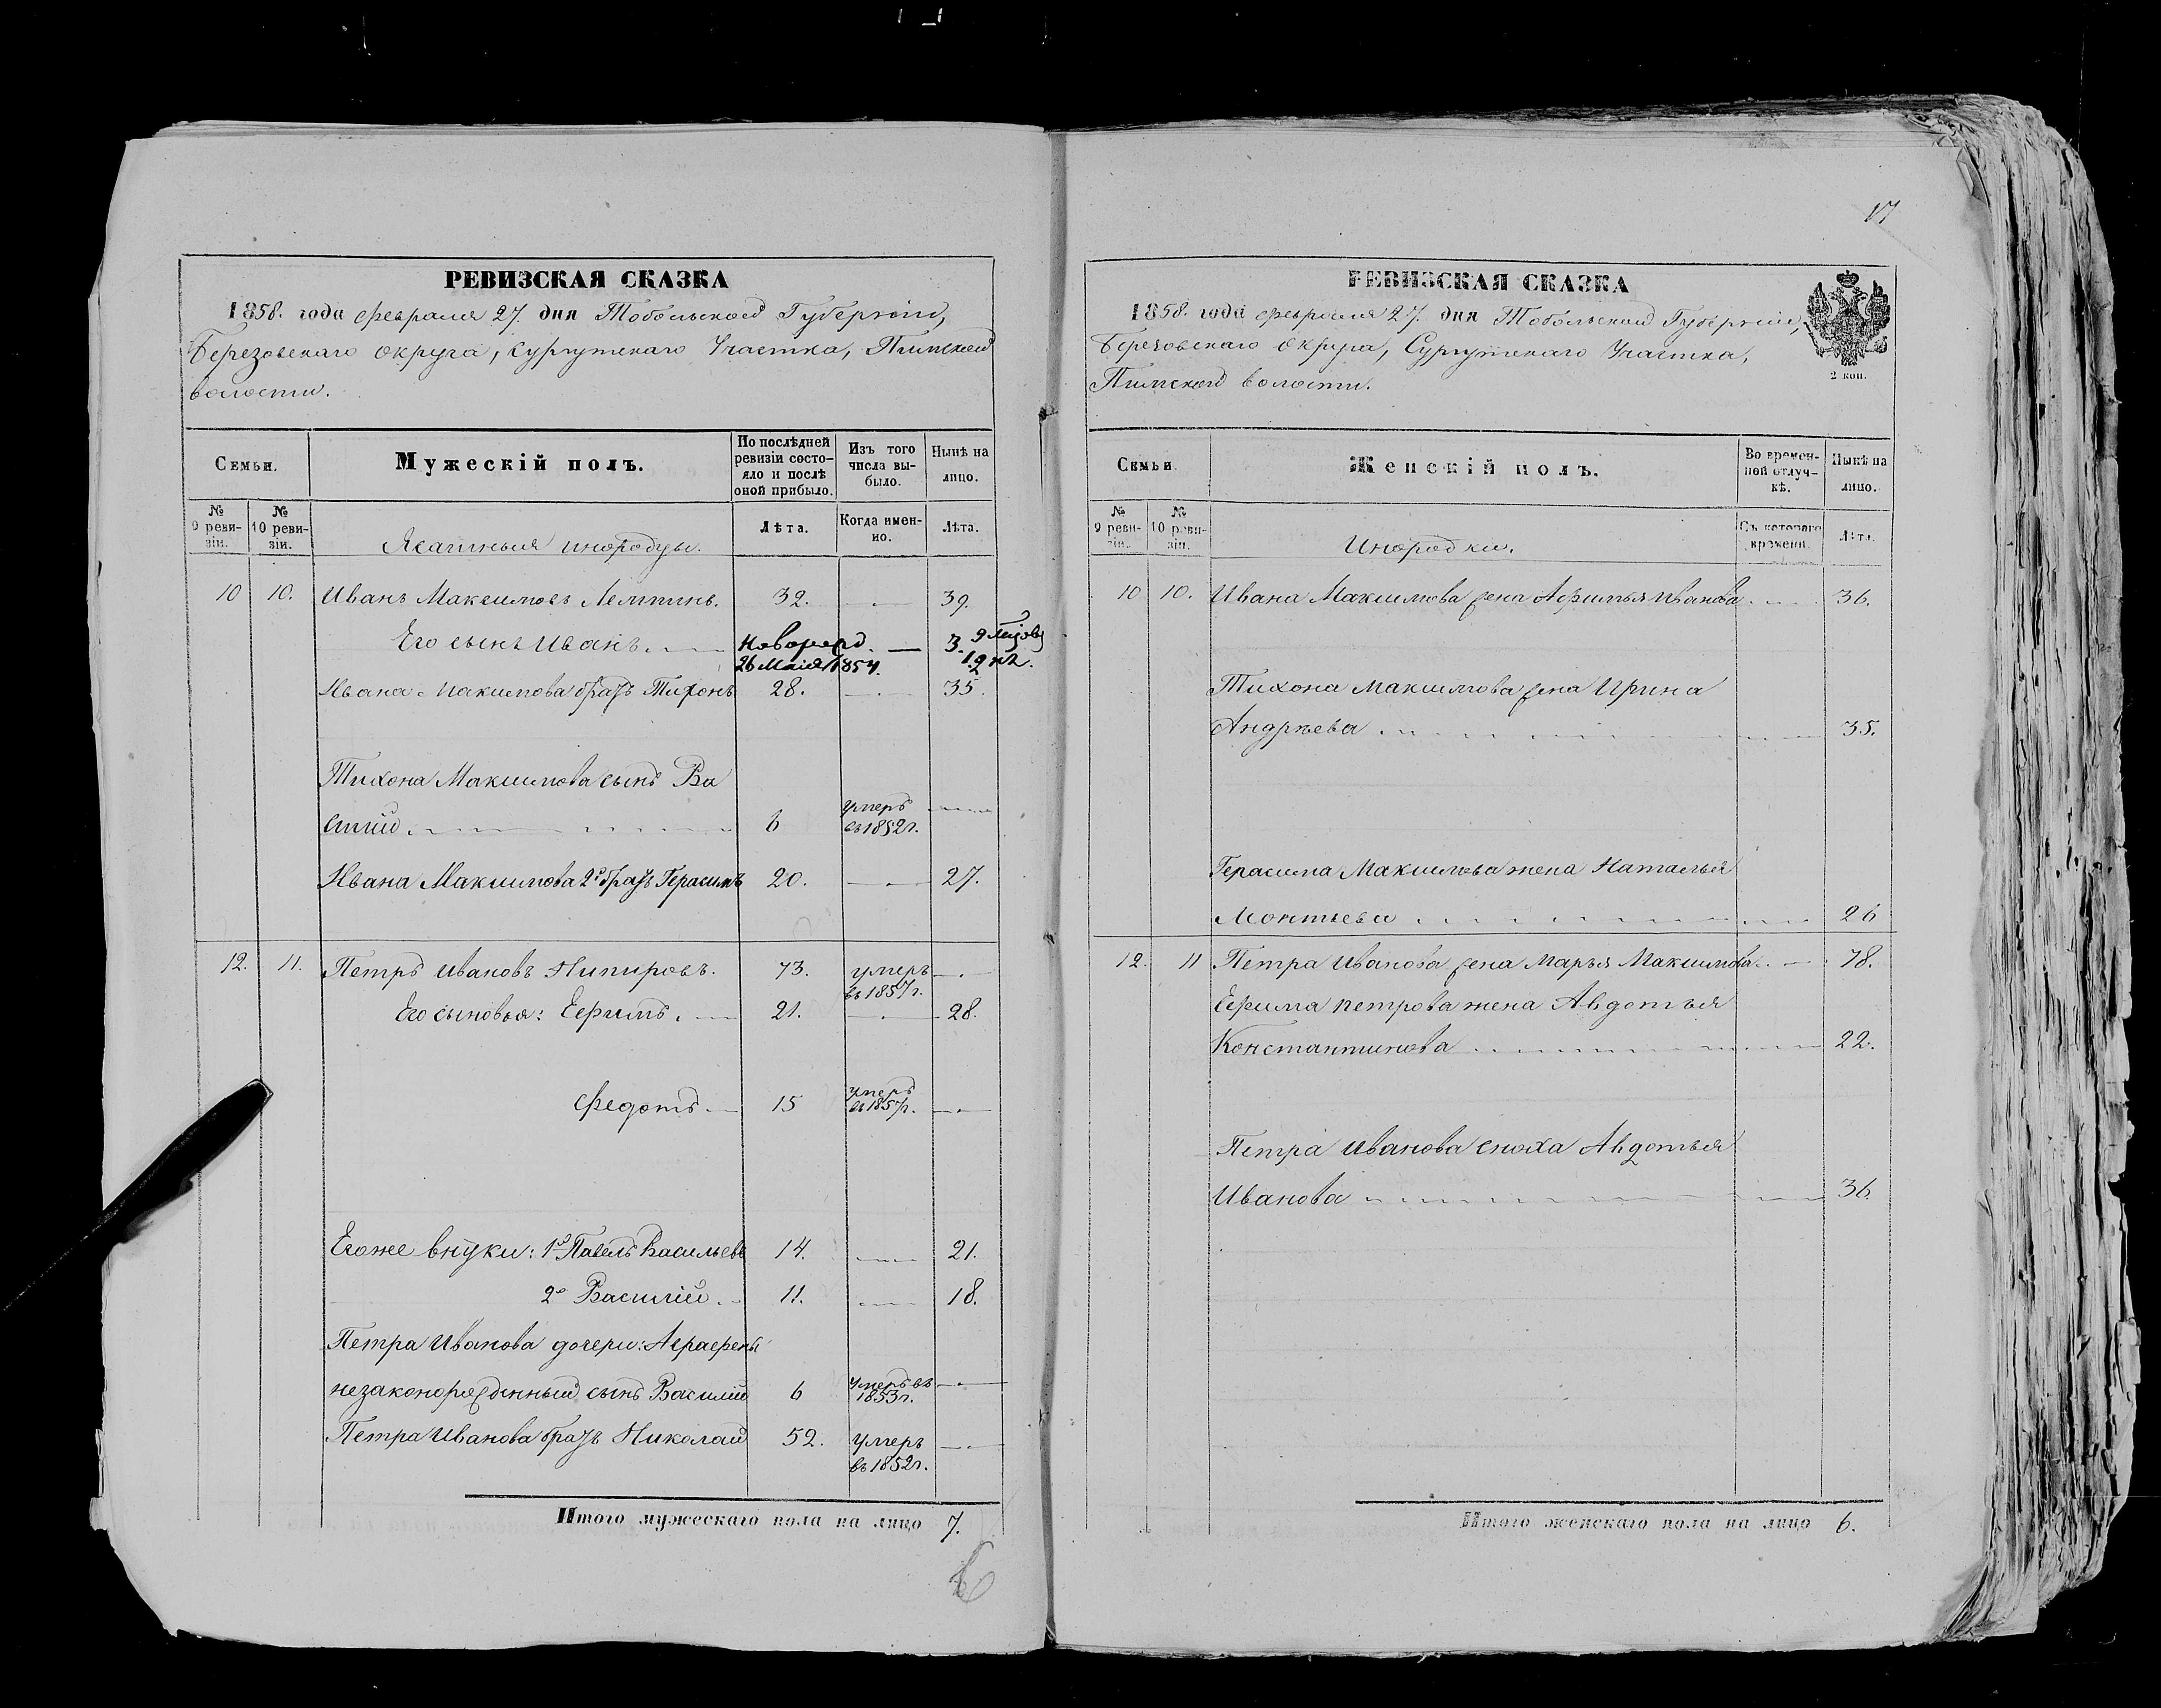 РЕВИЗСКАЯ СКАЗКА
1858. года февраля 27. дня Тобольской Губерніи,
Березовскаго округа, Сургутскаго Участка, Пимской
волости.
Семьи.
Мужескій полъ.
По послѣдней ревизіи состо-
яло и послѣ оной прибыло.
Изъ того числа вы-
было.
Нынѣ на лицо.
№ 9 реви-
зіи.
№ 10 реви-
зіи.
Ясашныя инородцы.
Лѣта.
Когда имен-
но.
Лѣта.
10 10. Иванъ Максимовъ Лемпинъ. 32. 39.
Его сынъ Иванъ. Новорожд. 3.
26 Маія 1854.
Ивана Максимова братъ Тихонъ 28. 35.
Тихона Максимова сынъ Ва
силій 6 умеръ въ 1852 г.
Ивана Максимова 2й братъ Герасимъ 20. 27.
12. 11. Петръ Ивановъ Нипировъ. 73. умеръ въ 1857 г.
Его сыновья: Ефимъ. 21. 28.
Федотъ 15 умеръ въ 1857 г.
Егоже внуки: 1й Павелъ Васильевъ 14. 21.
2й Василій. 11. 18.
Петра Иванова дочери: Аграфены
незаконорожденный сынъ Василій 6 умеръ въ 1853 г.
Петра Иванова братъ Николай 52. умеръ
въ 1852 г.
Итого мужескаго пола на лицо 7.
17
РЕВИЗСКАЯ СКАЗКА
1858. года февраля 27. дня Тобольской Губерніи,
Березовскаго округа, Сургутскаго Участка,
Пимской волости.
2 коп.
Семьи.
Женскій полъ.
Во времен-
ной отлуч-
кѣ.
Нынѣ на лицо.
№ 9 реви-
зіи.
№ 10 реви-
зіи.
Инородки.
Съ котораго времени.
Лѣта.
10 10. Ивана Максимова жена Афимья Иванова 36.
Тихона Максимова жена Ирина
Андреева 35.
Герасима Максимова жена Наталья
Монтьева 26
12. 11 Петра Иванова жена Марья Максимова 78.
Ефима Петрова жена Авдотья
Константинова 22.
Петра Иванова сноха Авдотья
Иванова 36.
Итого женскаго пола на лицо 6.